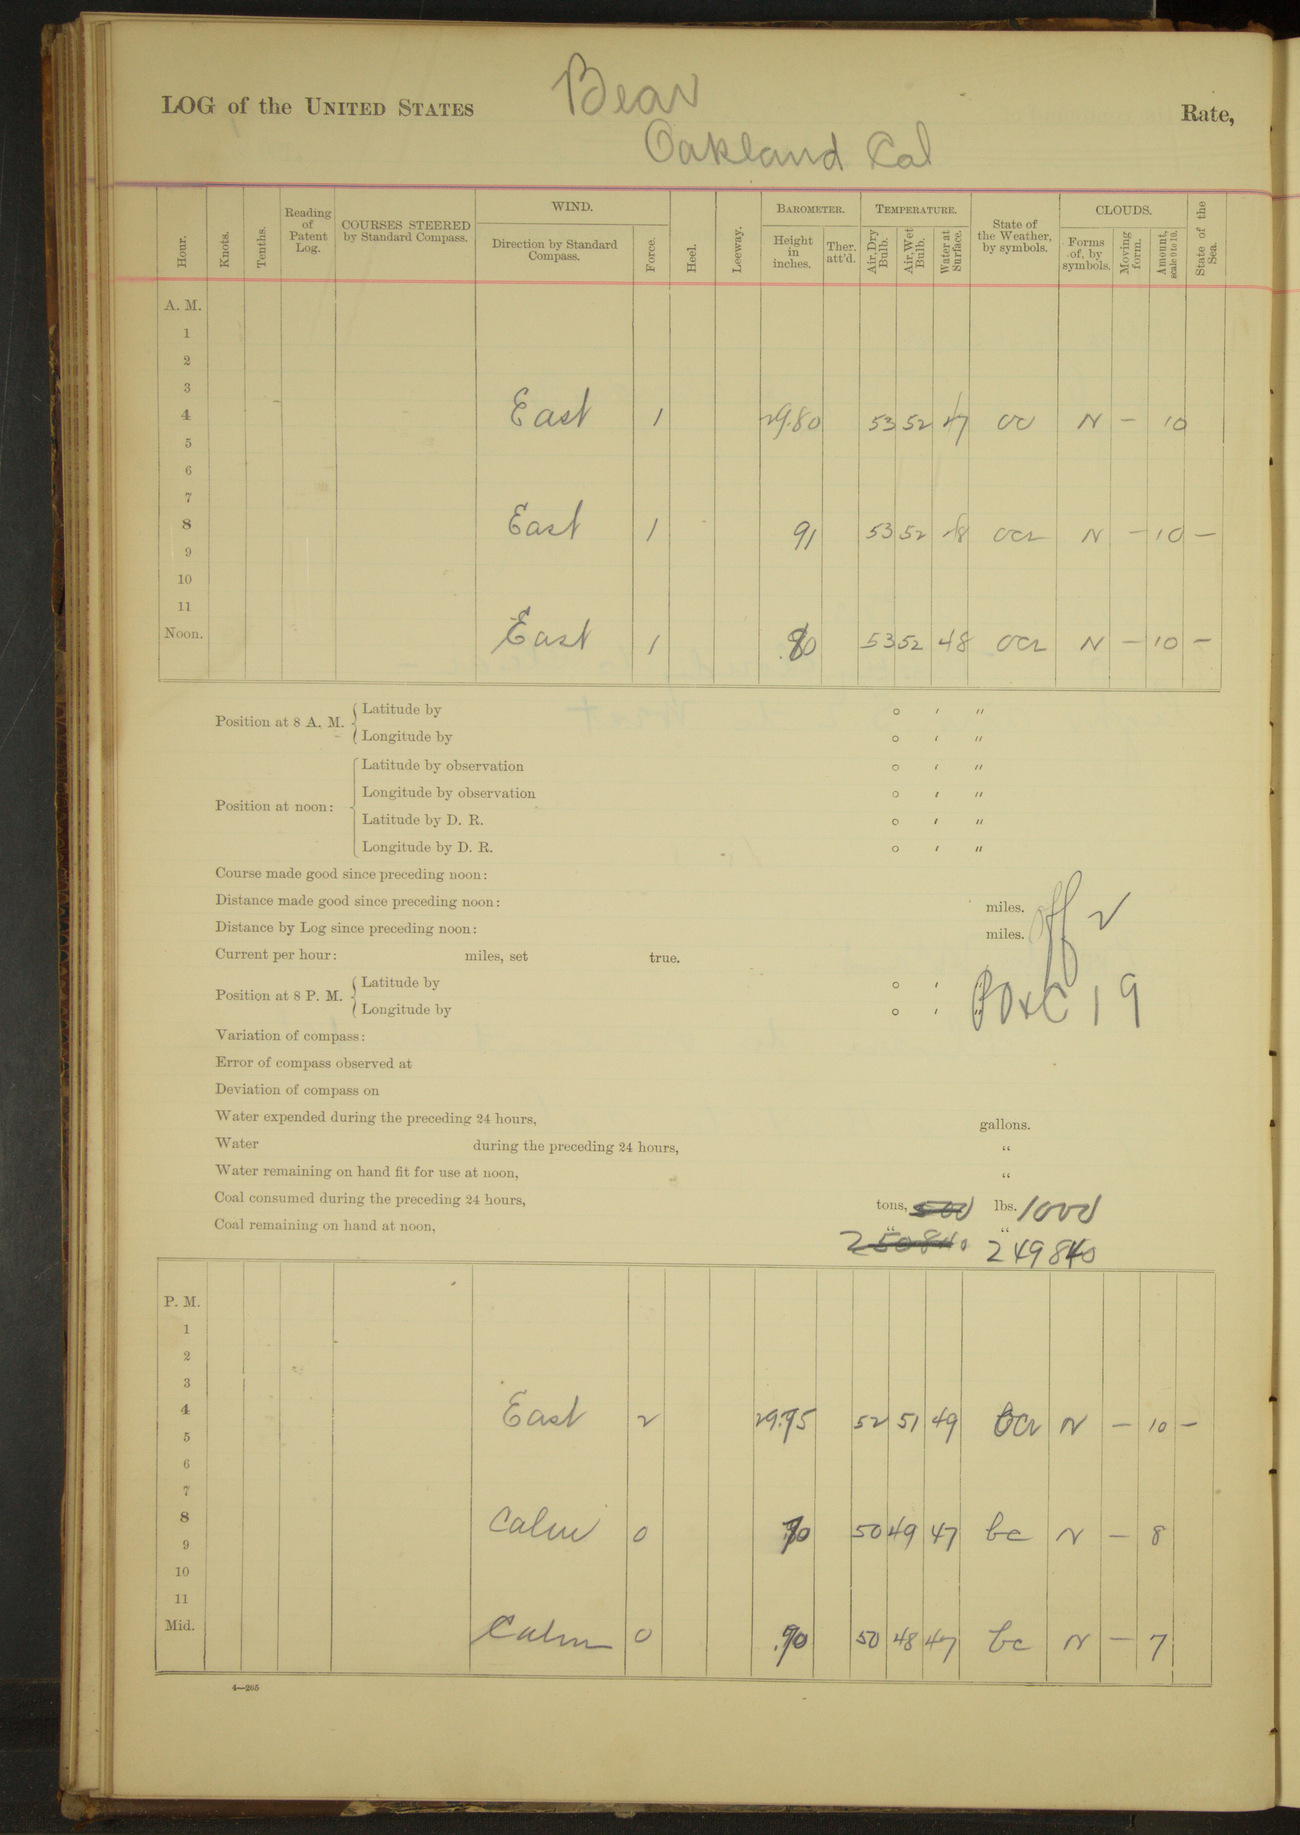 LOG of the UNITED STATES Bear Rate,
Oakland Cal
Hour. Knots. Tenths. Reading of Patent Log. COURSES STEERED by Standard Compass. WIND. Direction by Standard Compass. Force. Heel. Leeway. BAROMETER. Height in inches. Ther. att'd. TEMPERATURE. Air, Dry Bulb. Air, Wet Bulb. Water at Surface. State of the Weather, by symbols. CLOUDS. Forms of, by symbols. Moving form. Amount, scale 0 to 10. State of the Sea.
A. M.
1
2
3
4 East 1 29.80 53 52 47 N - 10
5
6
7
8 East 1 91 53 52 48 N - 10 -
9
10
11
Noon. East 1 53 52 48 N - 10 -
Position at 8 A. M. { Latitude by ° ′ ″
Longitude by ° ′ ″
Position at noon: { Latitude by observation ° ′ ″
Longitude by observation ° ′ ″
Latitude by D. R. ° ′ ″
Longitude by D. R. ° ′ ″
Course made good since preceding noon:
Distance made good since preceding noon: miles.
Distance by Log since preceding noon: miles.
Off 2
Current per hour: miles, set true.
Position at 8 P. M. { Latitude by ° ′ ″
Longitude by ° ′ ″
19
Variation of compass:
Error of compass observed at
Deviation of compass on
Water expended during the preceding 24 hours, gallons.
Water during the preceding 24 hours, "
Water remaining on hand fit for use at noon, "
Coal consumed during the preceding 24 hours, tons, 500 lbs. 1000
Coal remaining on hand at noon, " 250840 " 249840
P. M.
1
2
3
4 East 2 29.75 52 51 49 N - 10 -
5
6
7
8 Calm 0 50 49 47 bc N - 8
9
10
11
Mid. Calm 0 50 48 47 bc N - 7
4—265